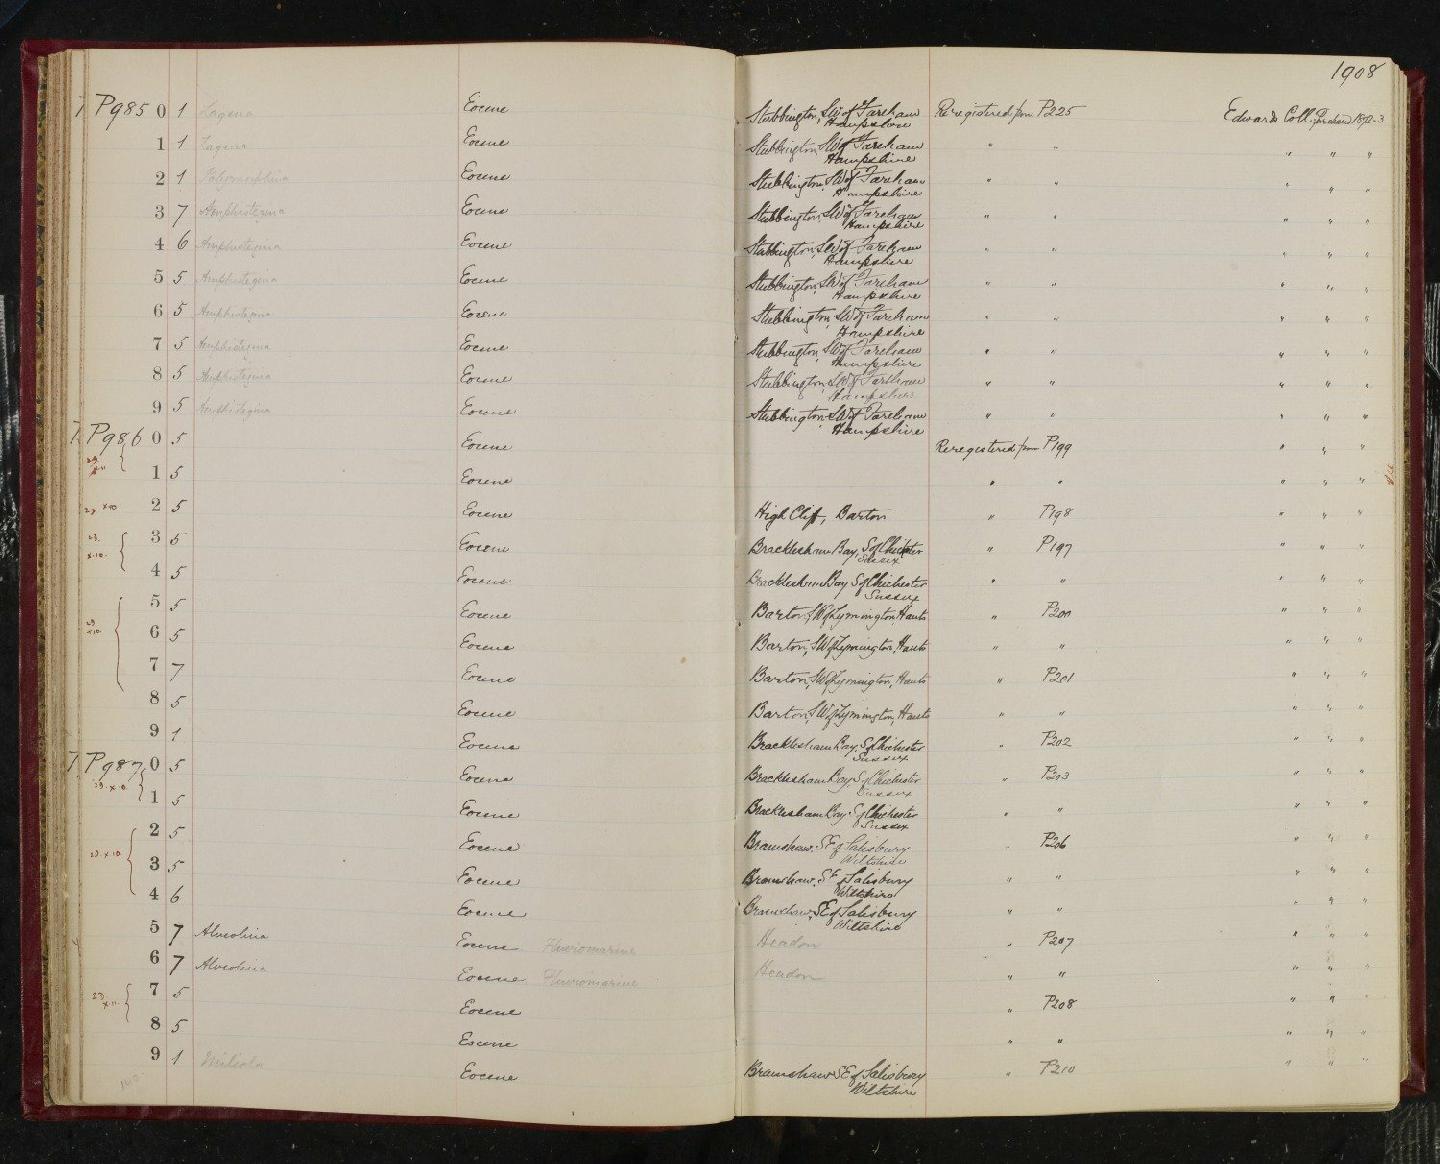 1908
P985 0 1 Lagena Eocene Stubbington, SW of Fareham Hampshire Reregistered from P225 Edwards Coll. Purchased 1872-3
1 1 Lagena Eocene Stubbington, SW of Fareham Hampshire " " " " "
2 1 Polymorphina Eocene Stubbington, SW of Fareham Hampshire " " " " "
3 7 Amphistegina Eocene Stubbington, SW of Fareham Hampshire " " " " "
4 6 Amphistegina Eocene Stubbington, SW of Fareham Hampshire " " " " "
5 5 Amphistegina Eocene Stubbington, SW of Fareham Hampshire " " " " "
6 5 Amphistegina Eocene Stubbington, SW of Fareham Hampshire " " " " "
7 5 Amphistegina Eocene Stubbington, SW of Fareham Hampshire " " " " "
8 5 Amphistegina Eocene Stubbington, SW of Fareham Hampshire " " " " "
9 5 Amphistegina Eocene Stubbington, SW of Fareham Hampshire " " " " "
P986 0 5 Eocene Reregistered from P199 " " "
1 5 Eocene " " " " "
23 x10 2 5 Eocene High Cliff, Barton " P198 " " "
23. x10. 3 5 Eocene Bracklesham Bay, S of Chichester Sussex " P197 " " "
4 5 Eocene Bracklesham Bay S of Chichester Sussex " " " " "
5 5 Eocene Barton, SW of Lymington, Hants " P200 " " "
23 x10. 6 5 Eocene Barton, SW of Lymington, Hants " " " " "
7 7 Eocene Barton, SW of Lymington, Hants " P201 " " "
8 5 Eocene Barton, SW of Lymington, Hants " " " " "
9 1 Eocene Bracklesham Bay, S of Chichester Sussex " P202 " " "
P987 0 5 Eocene Bracklesham Bay, S of Chichester Sussex " P203 " " "
1 5 Eocene Bracklesham Bay, S of Chichester Sussex " " " " "
2 5 Eocene Bramshaw, SE of Salisbury Wiltshire " P206 " " "
23. x10 3 5 Eocene Bramshaw, SE of Salisbury Wiltshire " " " " "
4 6 Eocene Bramshaw, SE of Salisbury Wiltshire " " " " "
5 7 Alveolina Eocene Fluviomarine Headon " P207 " " "
6 7 Alveolina Eocene Fluviomarine Headon " " " " "
7 5 Eocene " P208 " " "
8 5 Eocene " " " " "
9 1 Miliola Eocene Bramshaw SE of Salisbury Wiltshire " P210 " " "